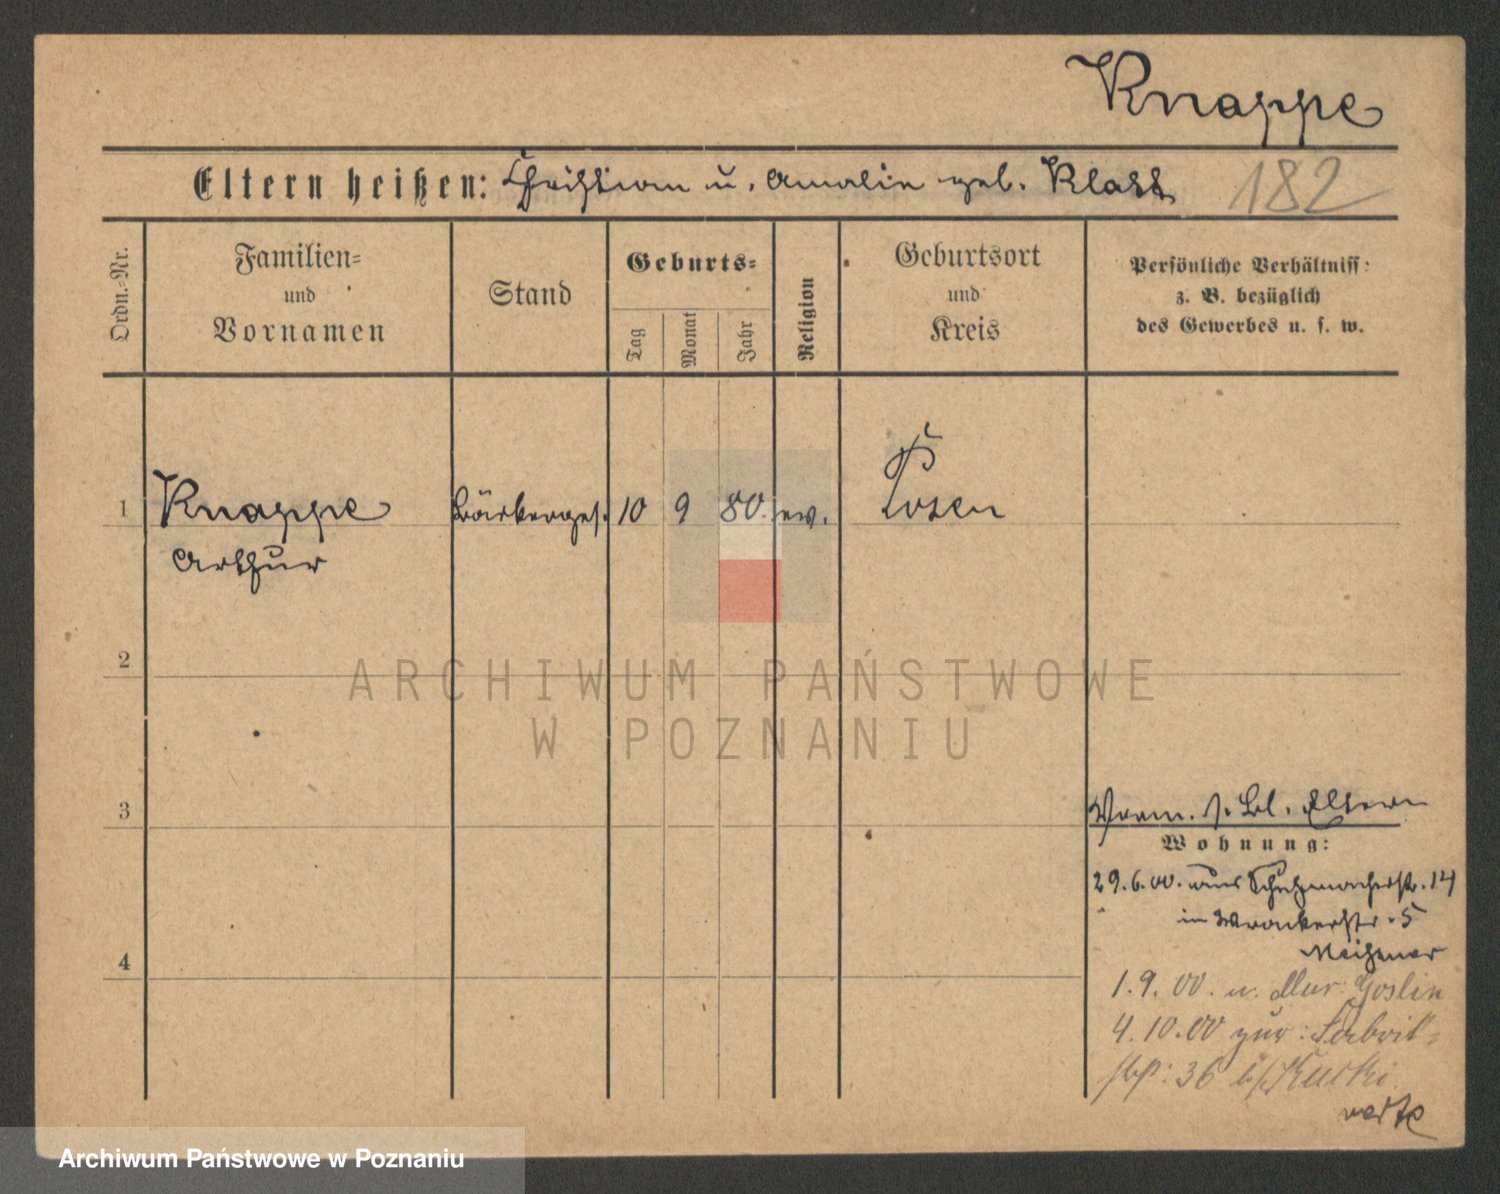 Knappe
Eltern heißen: Christian u. Amalie geb. Klatt
182
Ordn.-Nr.
Familien-
und
Vornamen
Stand
Geburts-
Tag
Monat
Jahr
Religion
Geburtsort
und
Kreis
Persönliche Verhältniss:
z. B. bezüglich
des Gewerbes u. s. w.
1 Knappe Bäckerges. 10 9 80. ev. Posen
Arthur
2
3
4
Vorm. s. Bl. Eltern
Wohnung:
29.6.00. aus Schuhmacherstr. 14
in Wronkerstr. 5
1.9.00. n. Mur. Goslin
4.10.00 zur: Fabrik-
str: 36 b/
verte
ARCHIWUM PAŃSTWOWE
W POZNANIU
Archiwum Państwowe w Poznaniu